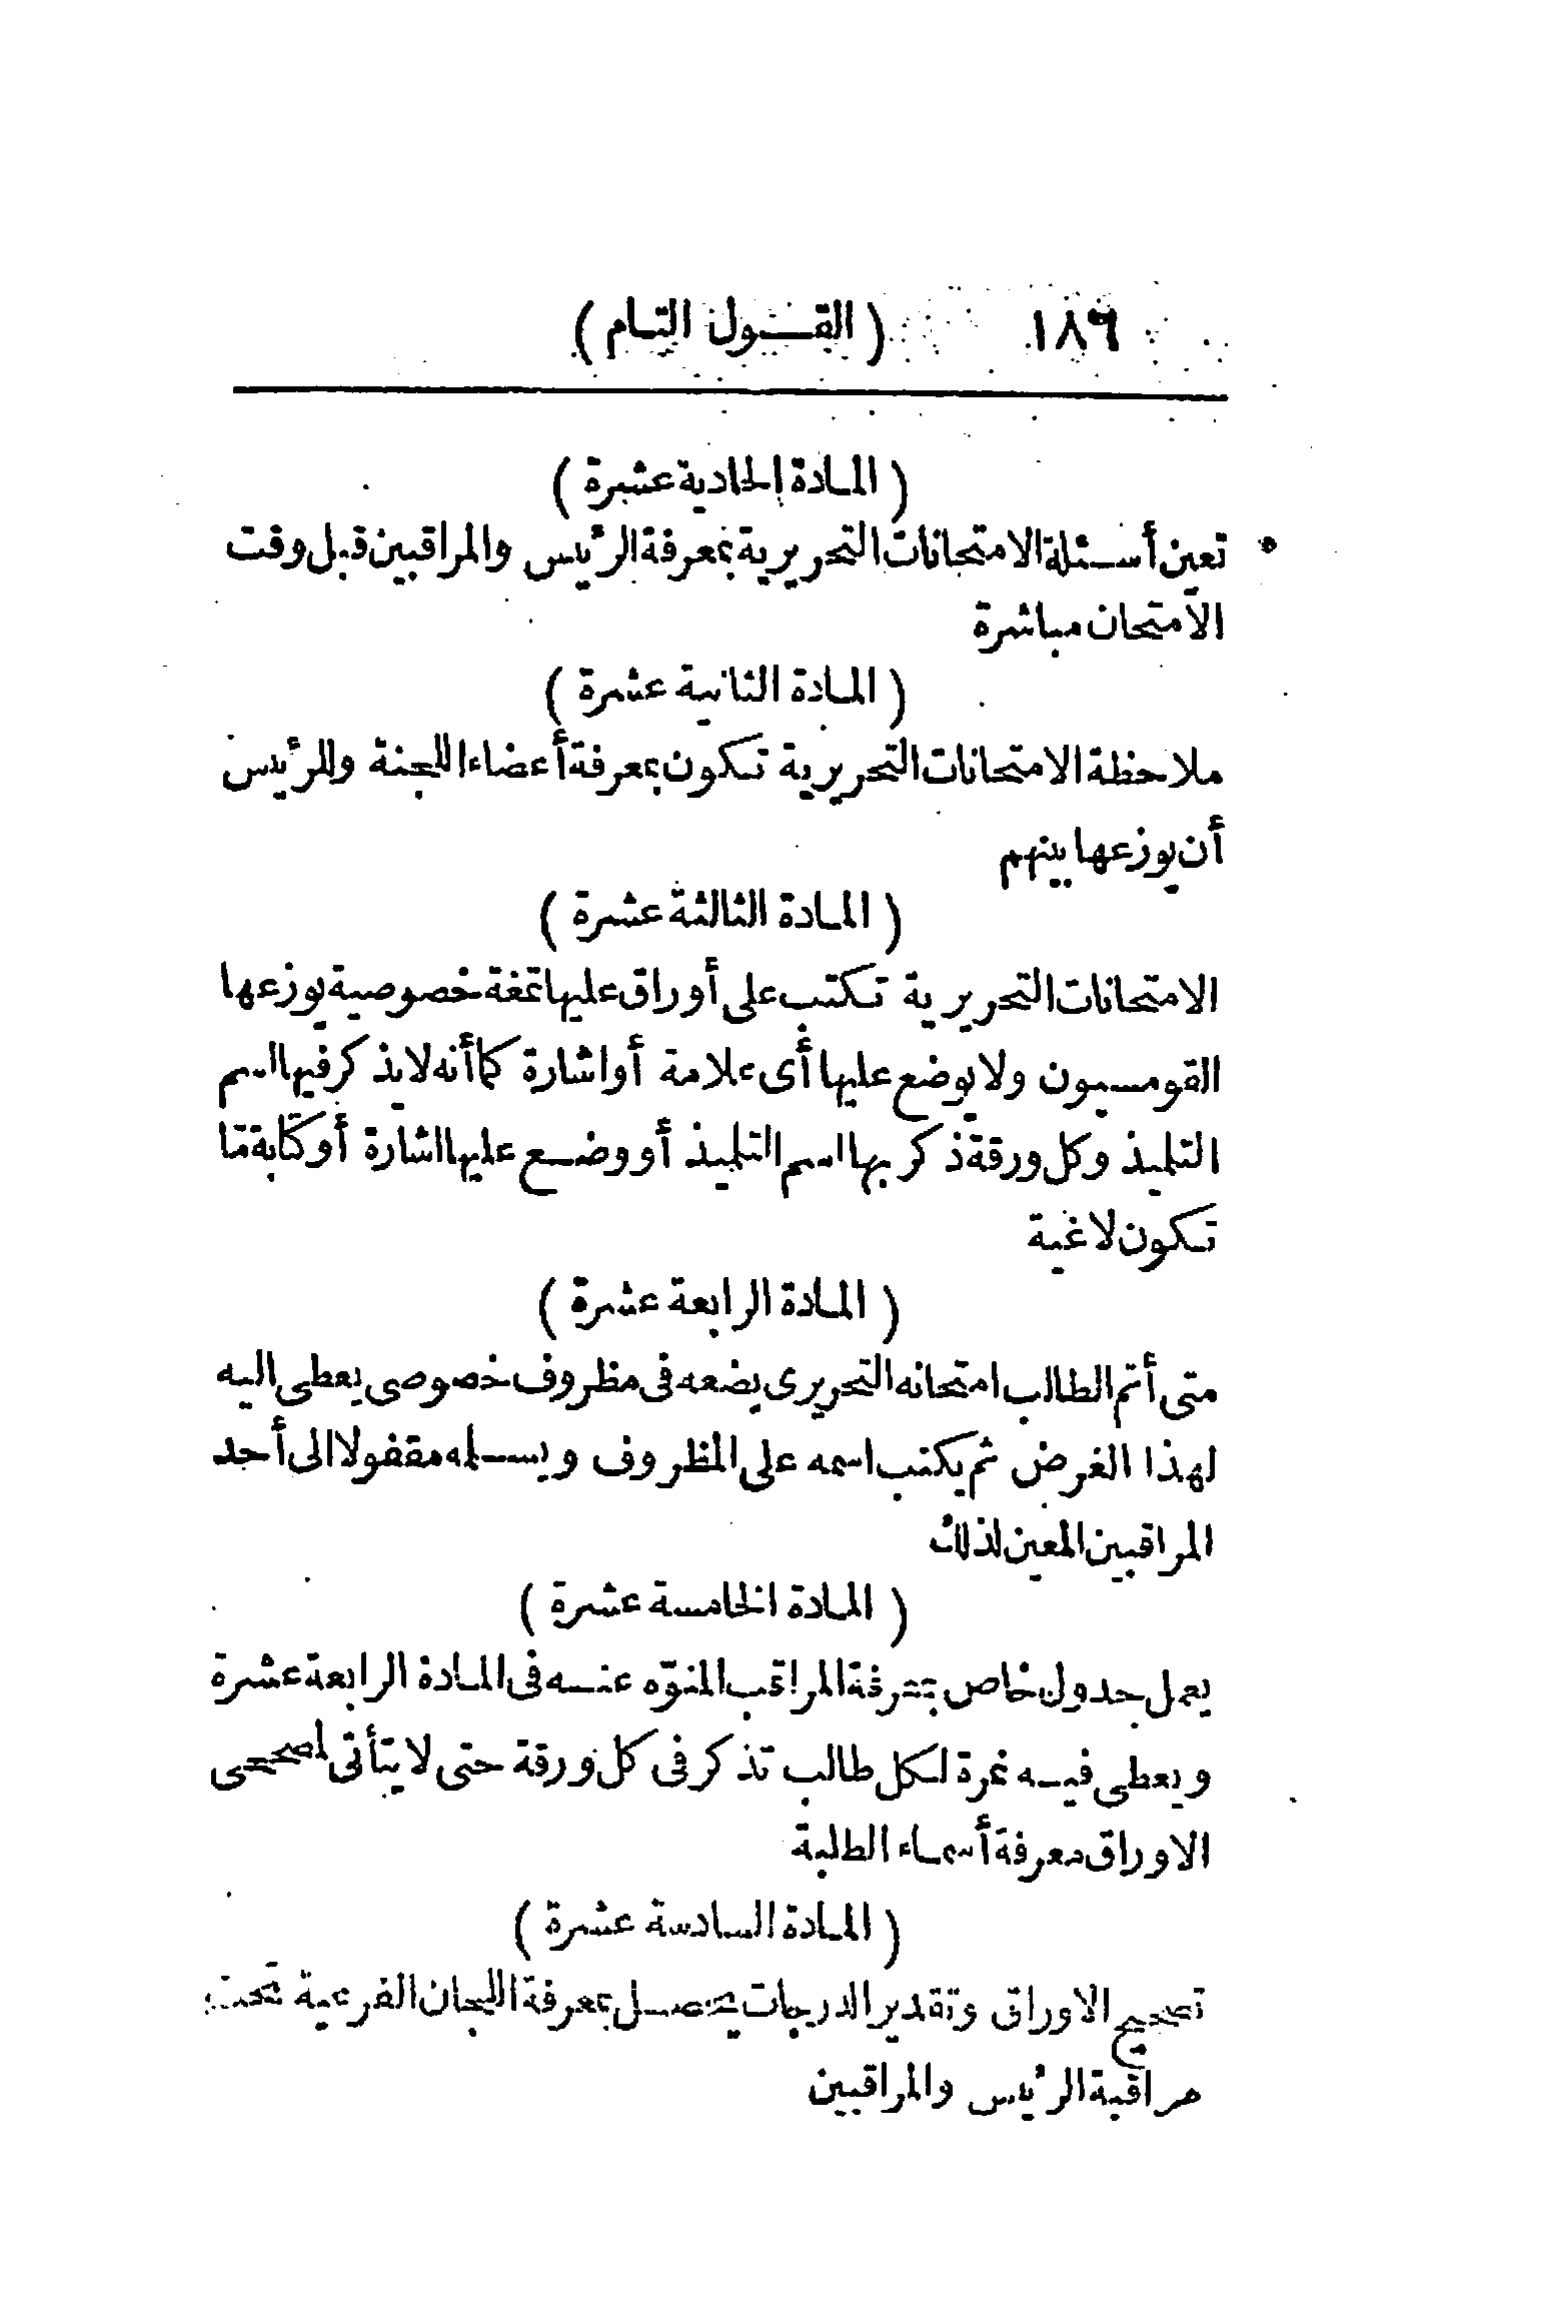 ١٨٦ ( القول التام )
( المادة الحادية عشرة )
تعين أسئلة الامتحانات التحريرية بمعرفة الرئيس والمراقبين قبل وقت
الامتحان مباشرة
( المادة الثانية عشرة )
ملاحظة الامتحانات التحريرية تكون بمعرفة أعضاء اللجنة وللرئيس
أن يوزعها بينهم
( المادة الثالثة عشرة )
الامتحانات التحريرية تكتب على أوراق عليها تمغة خصوصية يوزعها
القومسيون ولا يوضع عليها أى علامة أو اشارة كما أنه لا يذكر فيها اسم
التلميذ وكل ورقة ذكر بها اسم التلميذ أو وضع عليها اشارة أو كتابة ما
تكون لاغية
( المادة الرابعة عشرة )
متى أتم الطالب امتحانه التحريرى يضعه فى مظروف خصوصى يعطى اليه
لهذا الغرض ثم يكتب اسمه على المظروف ويسلمه مقفولا الى أحد
المراقبين المعين لذلك
( المادة الخامسة عشرة )
يعمل جدول خاص بمعرفة المراقب المنوّه عنه فى المادة الرابعة عشرة
ويعطى فيه نمرة لكل طالب تذكر فى كل ورقة حتى لا يتأتى لمصححى
الاوراق معرفة أسماء الطلبة
( المادة السادسة عشرة )
تصحيح الاوراق وتقدير الدرجات يحصل بمعرفة اللجان الفرعية تحت
مراقبة الرئيس والمراقبين